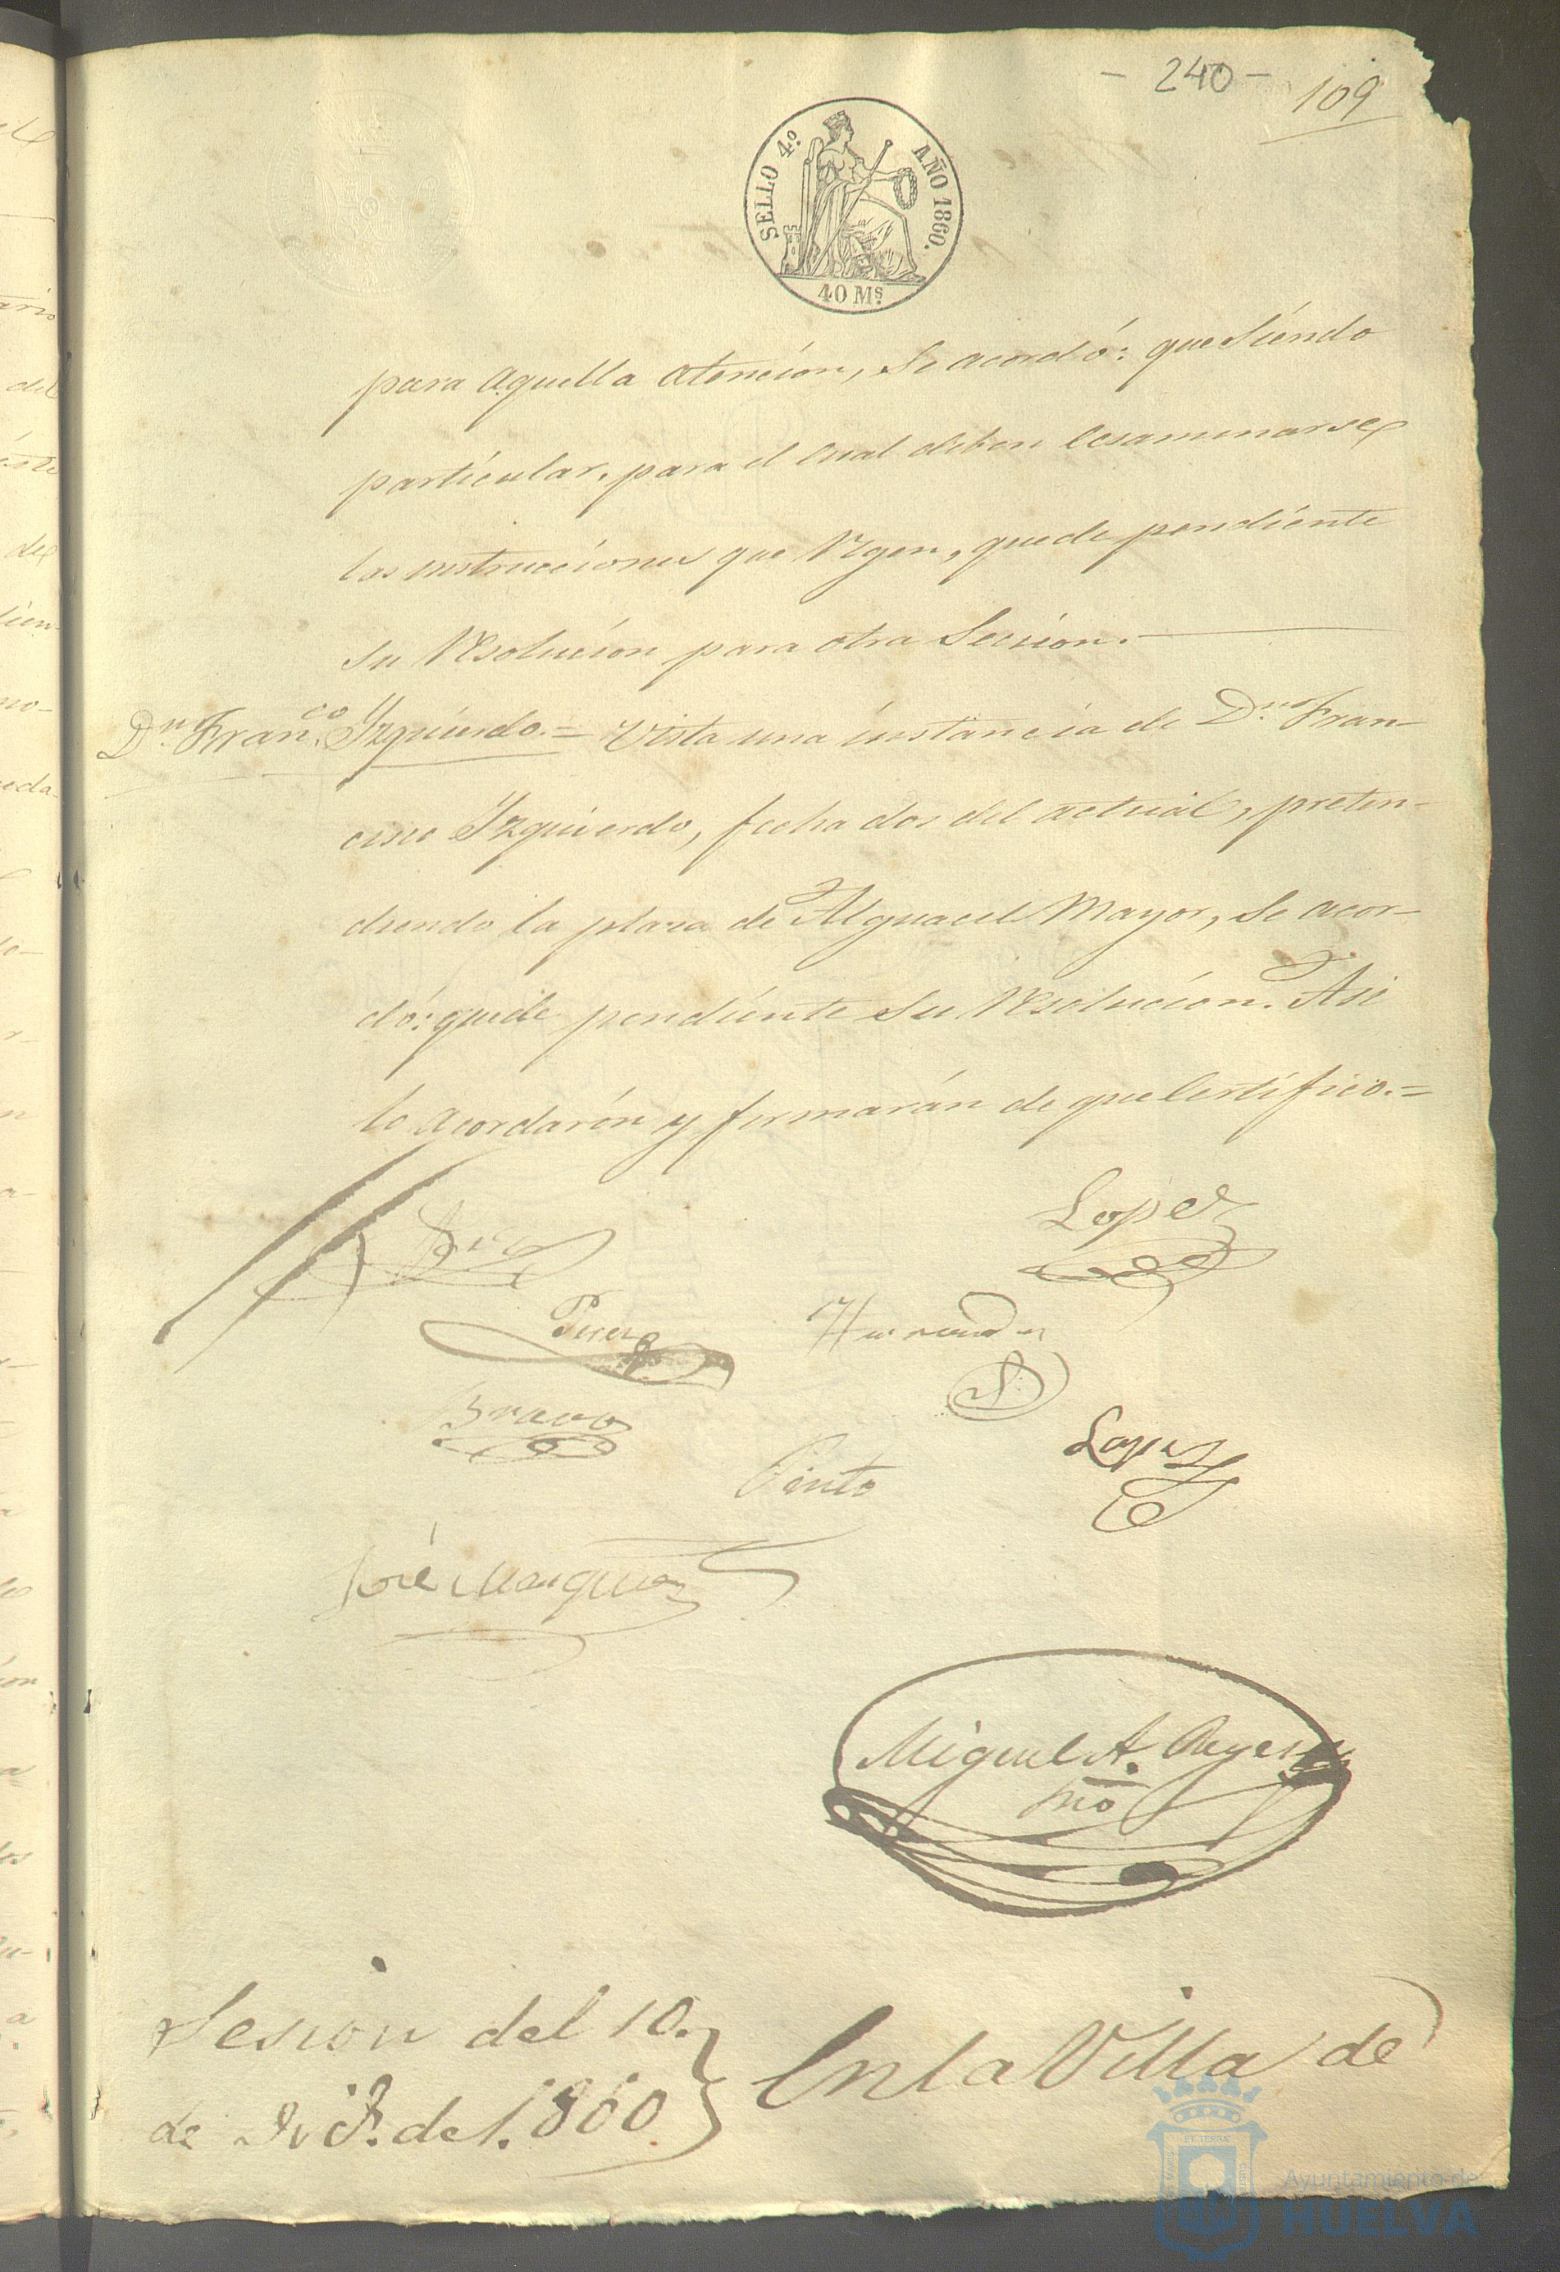 - 240 -
109
SELLO 4.º AÑO 1860.
40 Ms.
para aquella atencion, se acordó: que siéndo
particular, para el cual deben ecsaminarse
las instrucciones que rigen, quede pendiente
su resolucion para otra Seccion.
Dn. Franco. Izquierdo.= Vista una instancia de Dn. Fran-
cisco Izquierdo, fecha dos del actual, preten-
diendo la plaza de Alguacil Mayor, se acor-
dó: quede pendiente su resolucion. Asi
lo acordarón y firmarán de que Certifico.=
Lopez
Perez
Hernandez
Bravo
Lopez
Pinto
José Marquez
Miguel A. Reyes
Sesion del 10.
de de 1.860
En la Villa de
Ayuntamiento de
HUELVA